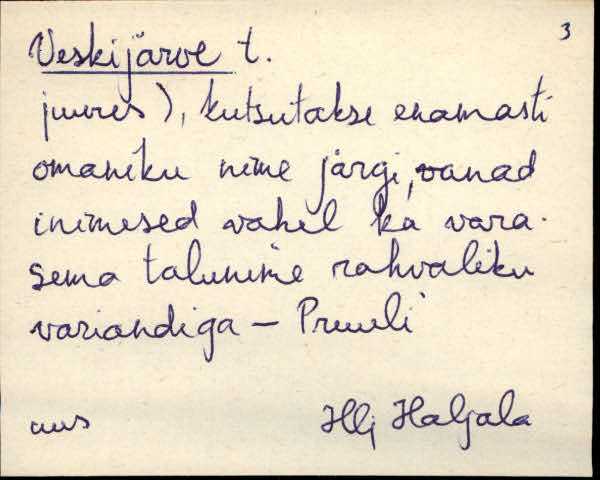 3
Veskijärve t.
juures), kutsutakse enamasti
omaniku nime järgi, vanad
inimesed vahel ka vara-
sema talunime rahvaliku
variandiga – Pruuli
uus
Hlj Haljala